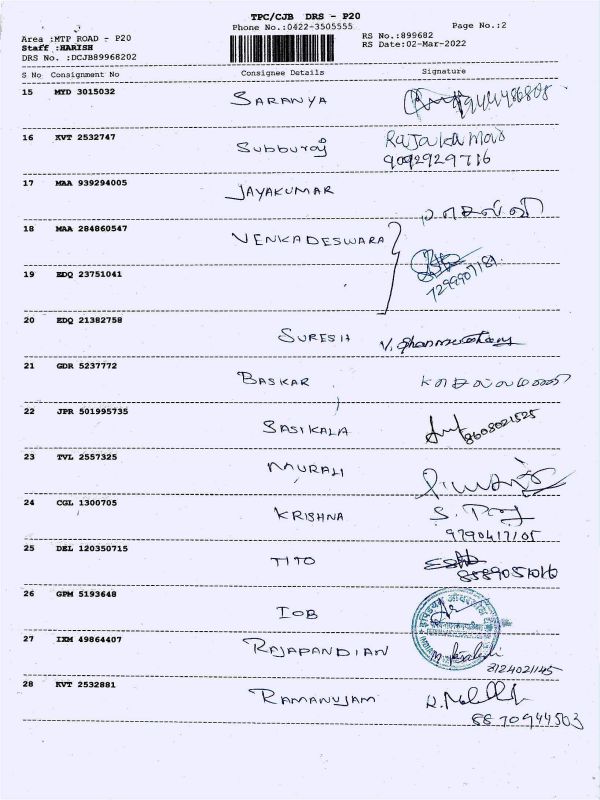 TPC/CJB DRS - P20
Phone No.:0422-3505555
Page No.:2
Area :MTP ROAD - P20
Staff :HARISH
DRS No. :DCJB89968202
RS No.:899682
RS Date:02-Mar-2022
S No Consignment No Consignee Details Signature
15 MYD 3015032 SARANYA
16 KVT 2532747 Subburaj Rajakumar
9092929716
17 MAA 939294005 JAYAKUMAR
18 MAA 284860547 VENKADESWARA
19 EDQ 23751041 7299907189
20 EDQ 21382758 SURESH
21 GDR 5237772 BASKAR
22 JPR 501995735 SASIKALA 8608021525
23 TVL 2557325 MURALI
24 CGL 1300705 KRISHNA S. Raj
9790417105
25 DEL 120350715 TITO
26 GPM 5193648 IOB
27 IXM 49864407 RAJAPANDIAN
28 KVT 2532881 RAMANUJAM
8870944503